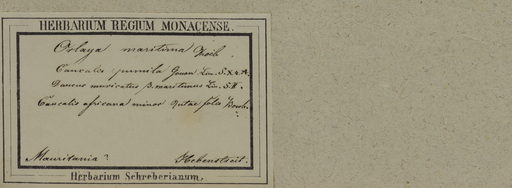 HERBARIUM REGIUM MONACENSE.
Orlaya maritima Koch.
Caucalis pumila Gouan Lin. S. X. 4.
Daucus muricatus β. maritimus Lin. S. V.
Caucalis africana minor Rutae folio
Mauritania? Hebenstreit.
Herbarium Schreberianum.